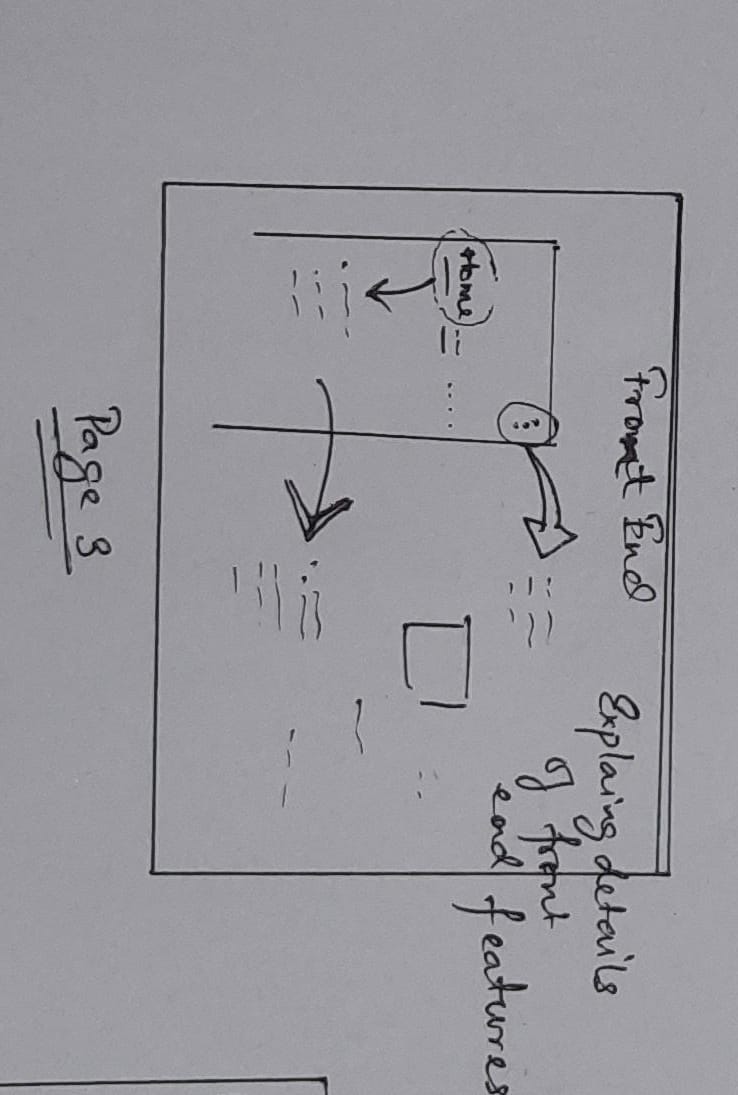 Front End
Explaing details
of front
end features
Home
Page 3